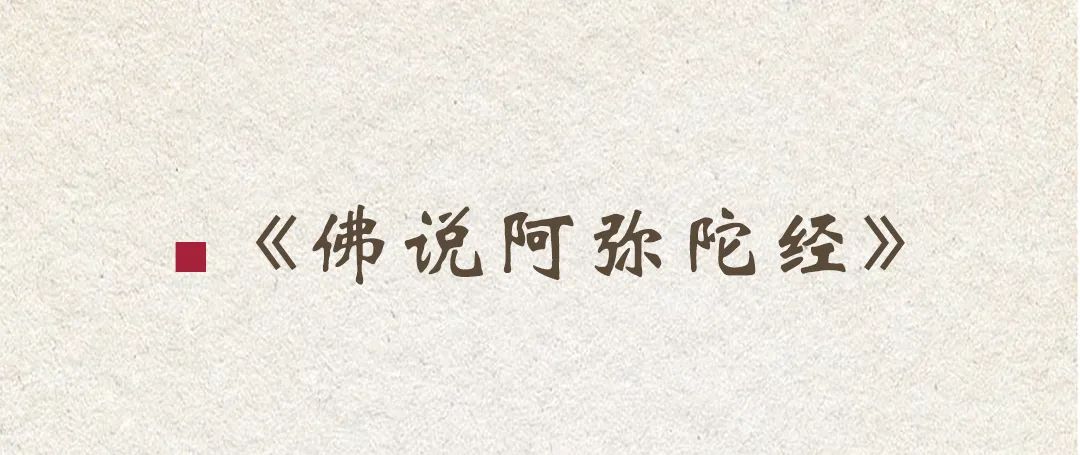 《佛说阿弥陀经》